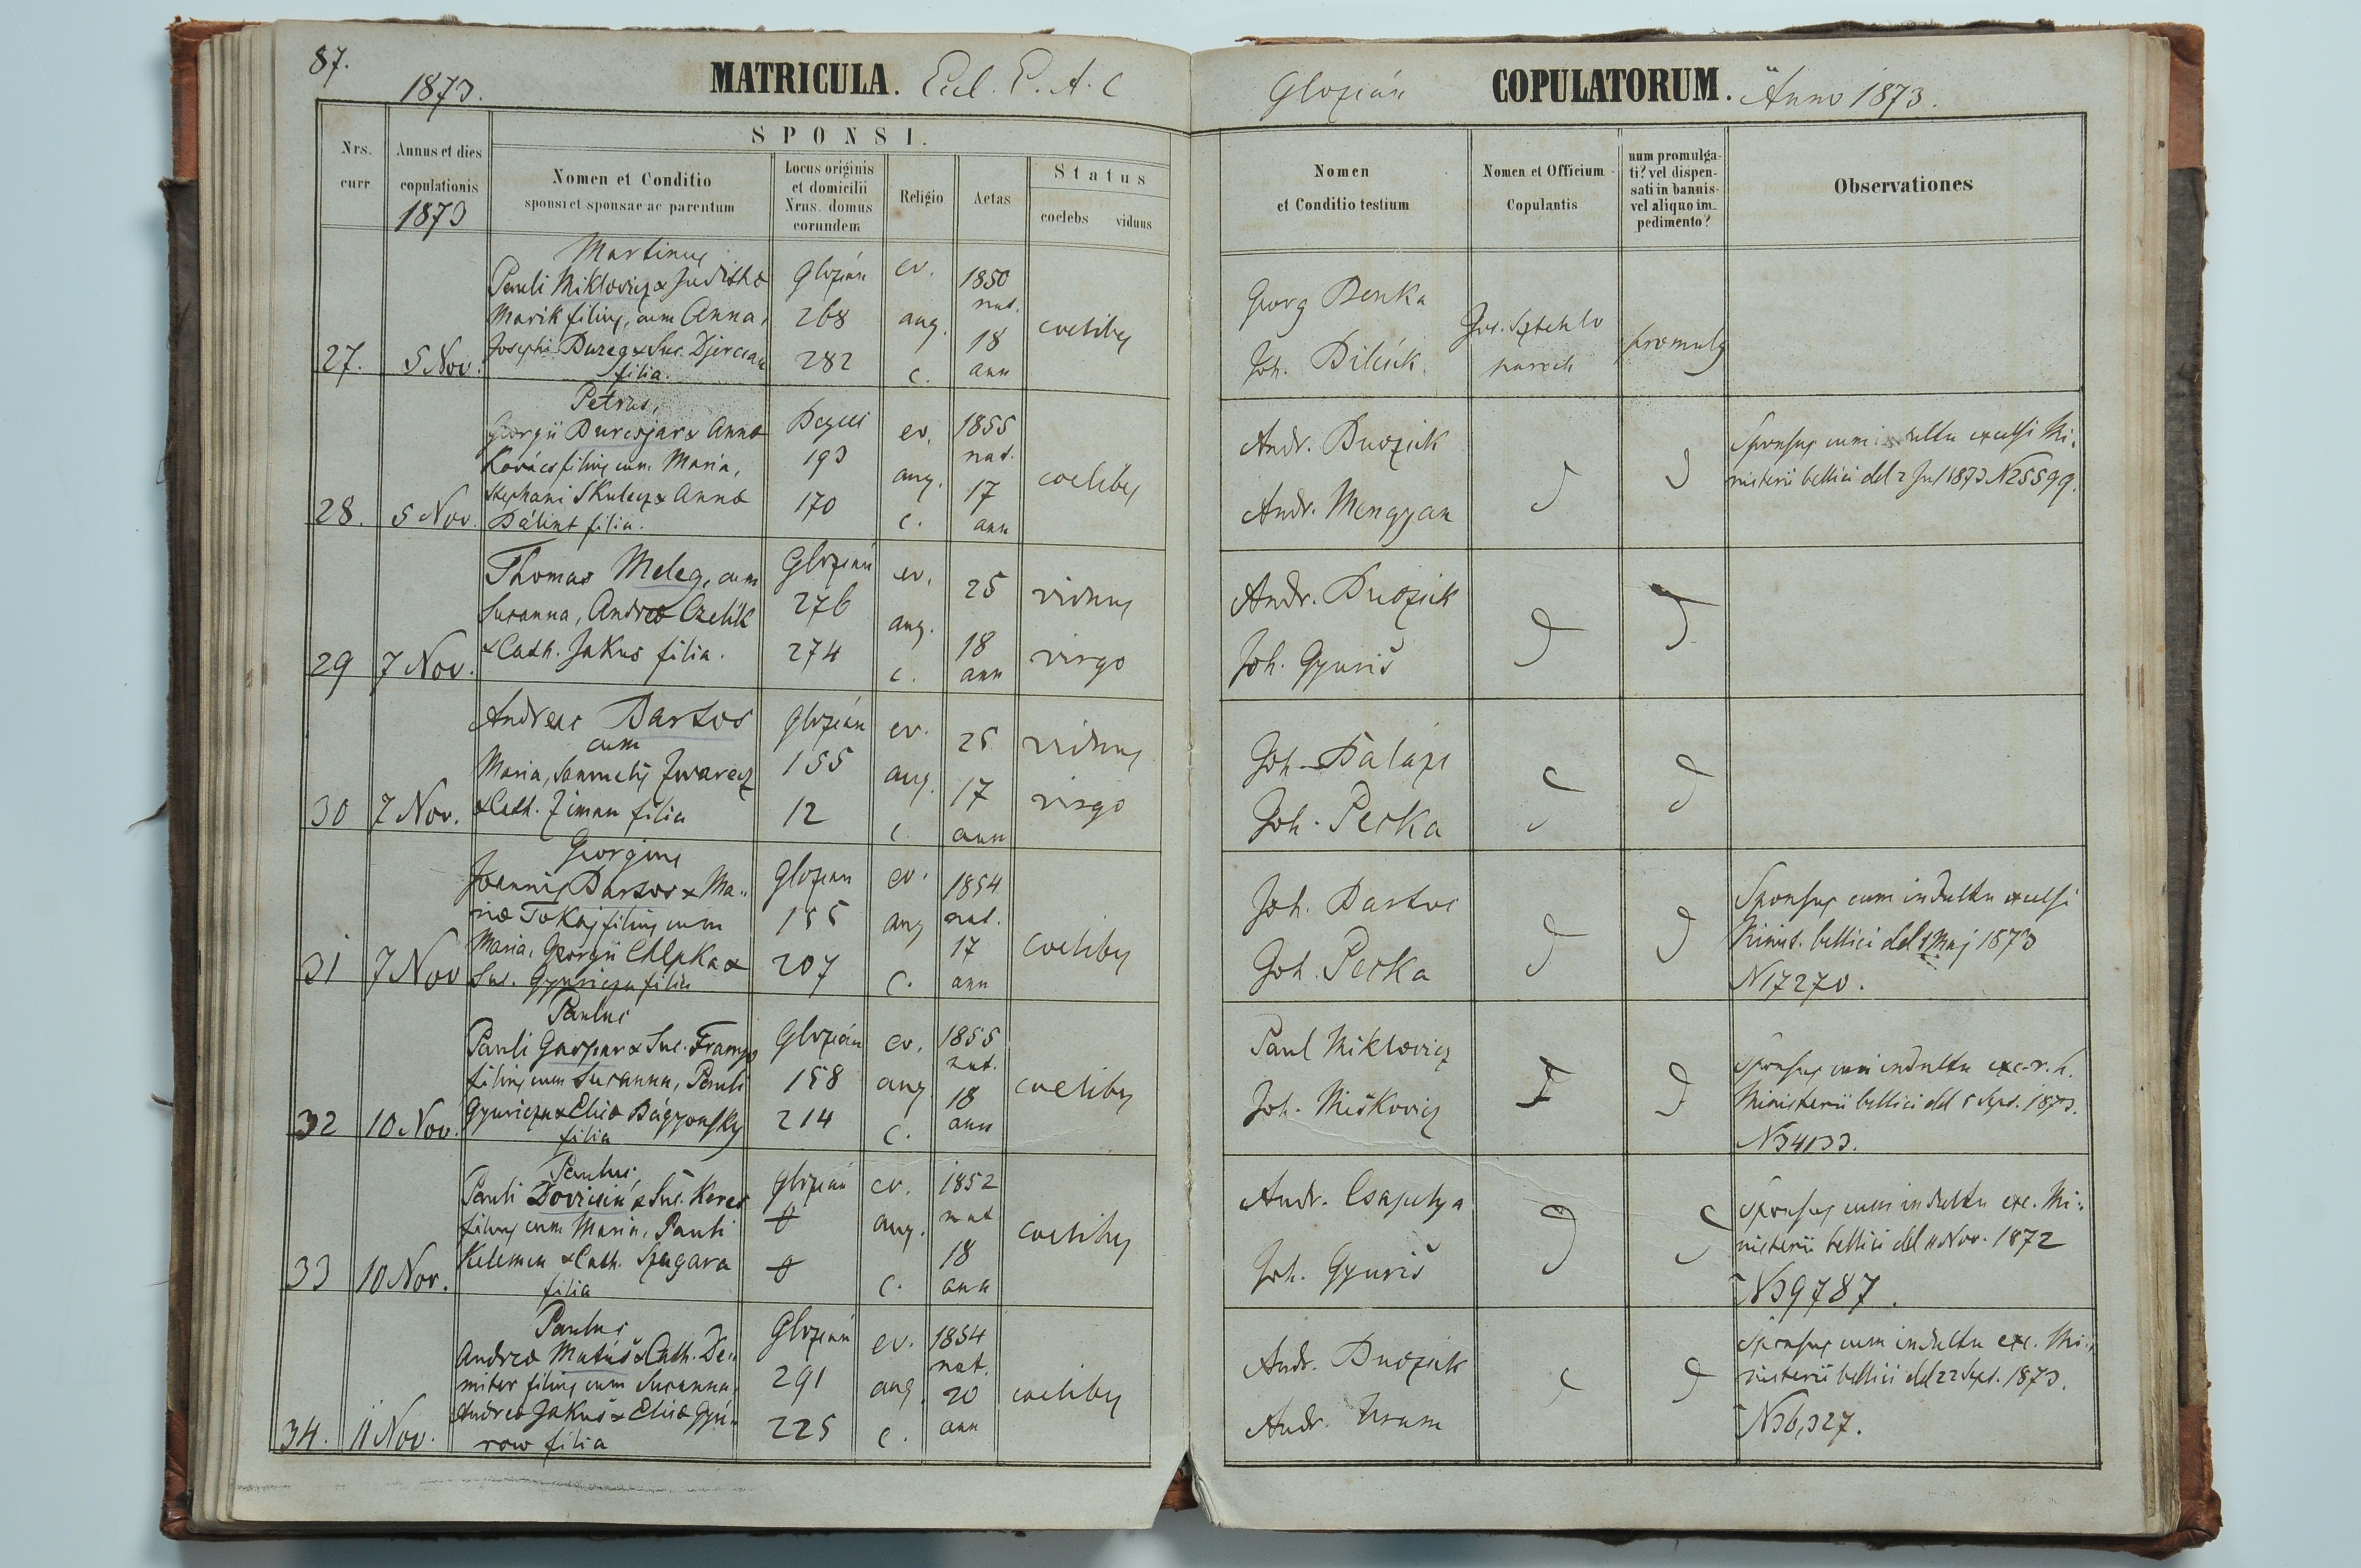 87.
1873.
MATRICULA. Eccl. E. A. C
Glozsán COPULATORUM. Anno 1873.
Nrs. curr
Annus et dies copulationis 1873
SPONSI.
Nomen et Conditio
sponsi et sponsae ac parentum
Locus originis
et domicilii
Nrus. domus
eorundem
Religio
Aetas
Status
coelebs viduus
Nomen
et Conditio testium
Nomen et Officium
Copulantis
num promulga-
ti? vel dispen-
sati in bannis
vel aliquo im-
pedimento?
Observationes
27. 5 Nov.
Martinus
Pauli Miklovicz & Judithæ
Marik filius, cum Anna,
Josephi Buzeg & Sus.
filia.
Glozsán
268
282
ev.
aug.
c.
1850
nat.
18
ann
coelibes
Georg Benka
Joh.
Jos. Sztehlo
paroch
promulg
28. 5 Nov.
Petrus,
Georgii & Annæ
Kovács filius cum Maria,
Stephani Skulecz & Annæ
Bálint filia.
193
170
ev.
aug.
c.
1855
nat.
17
ann
coelibes
Andr.
Andr. Mengyan
Sponsus cum indultu excelsi Mi-
nisterii bellici ddo 2 Jul 1873 N 25599.
29 7 Nov.
Thomas Meleg, cum
Susanna, Andreæ Czelik
& Cath. Jakus filia.
Glozsán
276
274
ev.
aug.
c.
25
18
ann
viduus
virgo
Andr.
Joh. Gyuriš
30 7 Nov.
Andreas Bartos
cum
Maria, Samuelis Zwarecz
& Cath. Ziman filia
Glozsán
155
12
ev.
aug.
c.
25
17
ann
viduus
virgo
Joh. Balázs
Joh. Pecka
31 7 Nov
Georgius
Joannis Bartos & Ma-
riæ Tokaj filius cum
Maria, Georgii Chlpka &
Sus. Gyuricza filia
Glozsán
155
207
ev.
aug
c.
1854
nat.
17
ann
coelibes
Joh. Bartos
Joh. Pecka
Sponsus cum indultu excelsi
Minist. bellici ddo 1 Maj 1873
N 17270.
32 10 Nov.
Paulus
Pauli Gaspar & Sus.
filius cum Susanna, Pauli
Gyuricza & Elisæ Bágyonszky
filia
Glozsán
158
214
ev.
aug
c.
1855
nat.
18
ann
coelibes
Paul Miklovicz
Joh. Miškovicz
Sponsus cum indultu exc. r. h.
Ministerii bellici ddo 5 Sept. 1873.
N 34133.
33 10 Nov.
Paulus,
Pauli Dovicsin & Sus. Keres
filius cum Maria, Pauli
Kelemen & Cath. Szugara
filia
Glozsán
ev.
aug.
c.
1852
nat
18
ann
coelibes
Andr. Csapulya
Joh. Gyuriš
Sponsus cum indultu exc. Mi-
nisterii bellici ddo 11 Nov. 1872
N 39787.
34. 11 Nov.
Paulus
Andreæ Matúš & Cath. De-
miter filius cum Susanna,
Andreæ Jakuš & Elisæ Gyu-
row filia
Glozsán
291
225
ev.
aug
c.
1854
nat.
20
ann
coelibes
Andr.
Andr. Uram
Sponsus cum indultu exc. Mi-
nisterii bellici ddo 22 Sept. 1873.
N 36,327.